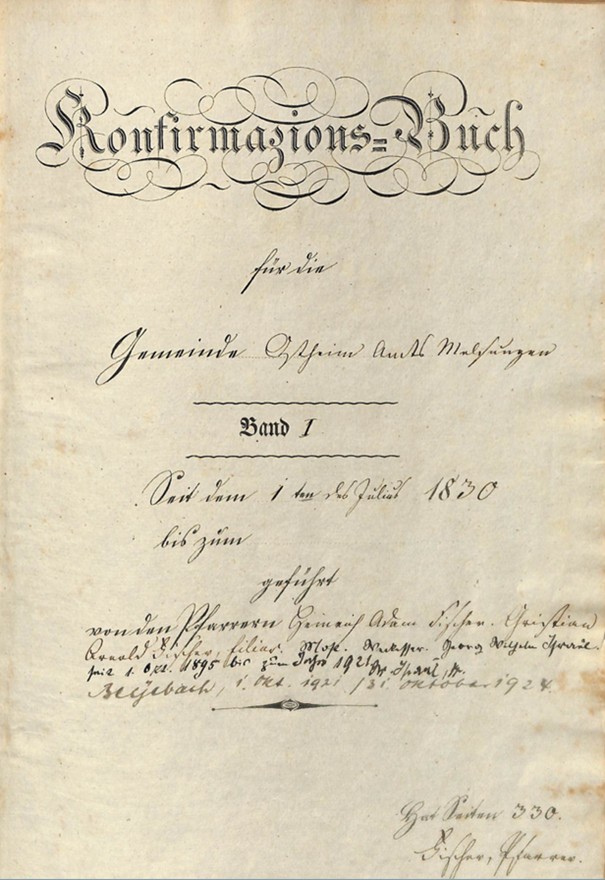 Konfirmazions=Buch
für die
Gemeinde Ostheim Amts Melsungen
Band I
Seit dem 1 ten des Julius 1830
bis zum
geführt
von den Pfarrern Heinrich Adam Fischer. Christian
Arnold Fischer, Georg Wilhelm Israel.
seit 1. Okt. 1895 bis zum Jahre 1921
1. Okt. 1921 / 31 Oktober 1924.
Hat Seiten 330.
Fischer, Pfarrer.